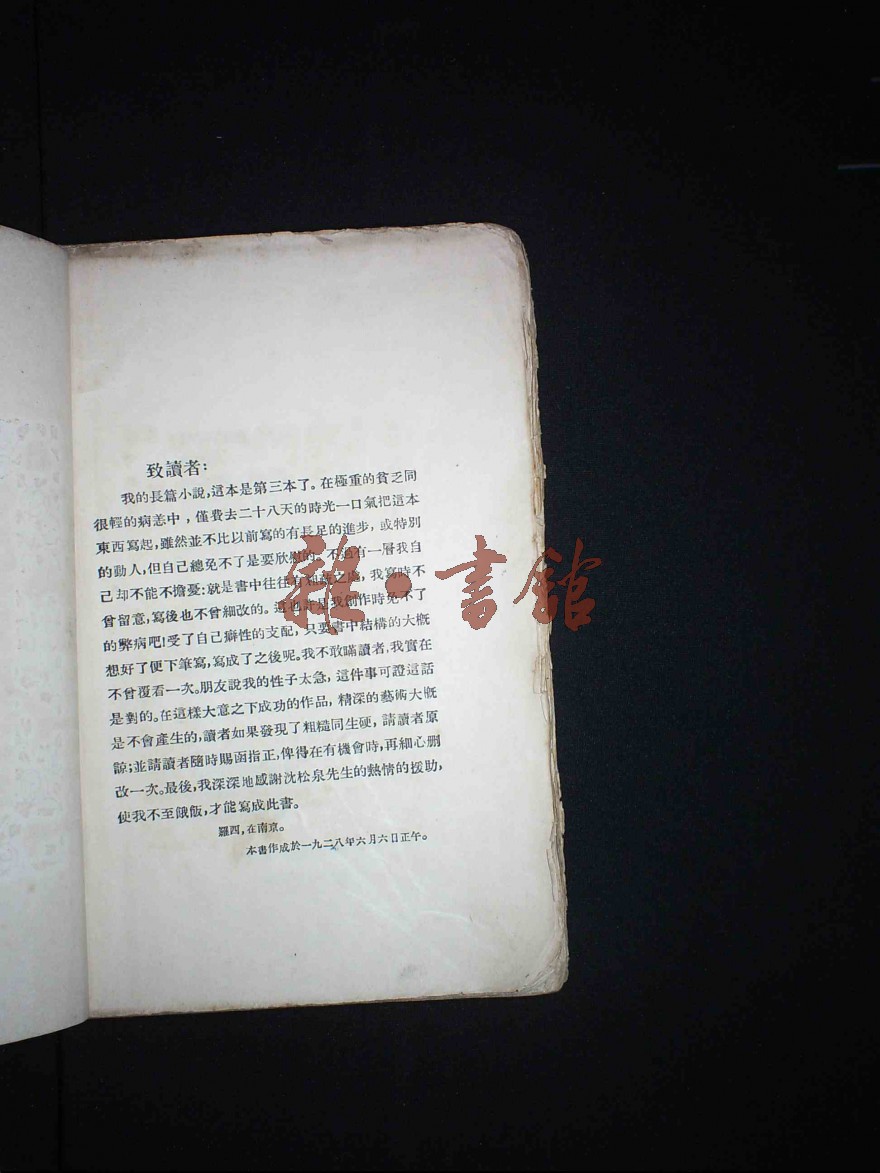 致讀者：
我的長篇小說，這本是第三本了。在極重的貧乏同
很輕的病恙中，僅費去二十八天的時光一口氣把這本
東西寫起，雖然並不比以前寫的有長足的進步，或特別
的動人，但自己總免不了是要欣慰的。不過有一層我自
己却不能不擔憂：就是書中往往有和疏之處，我寫時不
曾留意，寫後也不曾細改的。這也許是我創作時免不了
的弊病吧！受了自己癖性的支配，只要書中結構的大概
想好了便下筆寫，寫成了之後呢。我不敢瞞讀者，我實在
不曾覆看一次。朋友說我的性子太急，這件事可證這話
是對的。在這樣大意之下成功的作品，精深的藝術大概
是不會產生的，讀者如果發現了粗糙同生硬，請讀者原
諒；並請讀者隨時賜函指正，俾得在有機會時，再細心删
改一次。最後，我深深地感謝沈松泉先生的熱情的援助，
使我不至餓飯，才能寫成此書。
羅西，在南京。
本書作成於一九二八年六月六日正午。
雜·書館